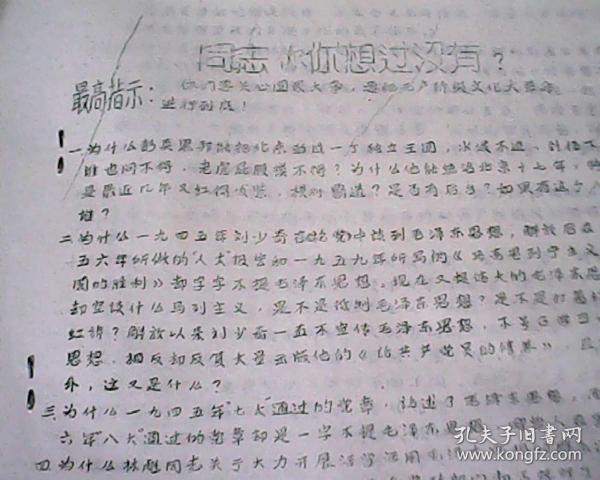 同志：你想过没有？
最高指示：你们要关心国家大事，要把无产阶级文化大革命
进行到底！
一 为什么彭真黑帮能把北京 成一个独立王国，水泼不进、针插不
谁也问不得，老虎屁股摸不得？为什么他能统治北京十七年，
是最近几年又红得发紫、 ？是否有后台？如果有这个
谁？
二 为什么一九四五年刘少奇在 党中谈到毛泽东思想，解放后在
五六年所做的"八大"报告和一九五九年所写的《马克思列宁主义
国的胜利》却字字不提毛泽东思想。现在又提伟大的毛泽东思
却空谈什么马列主义，是不是抵制毛泽东思想？是不是打着
红旗？解放以来刘少奇一直不宣传毛泽东思想，不
思想，相反却反复大量出版他的《论共产党员的修养》，
外，这又是什么？
三 为什么一九四五年"七大"通过的党章，论述了毛泽东思想，
六年"八大"通过的党章却是一字不提毛泽东思想
四 为什么林彪同志关于大力开展活学活用
孔夫子旧书网
www.kongfz.com